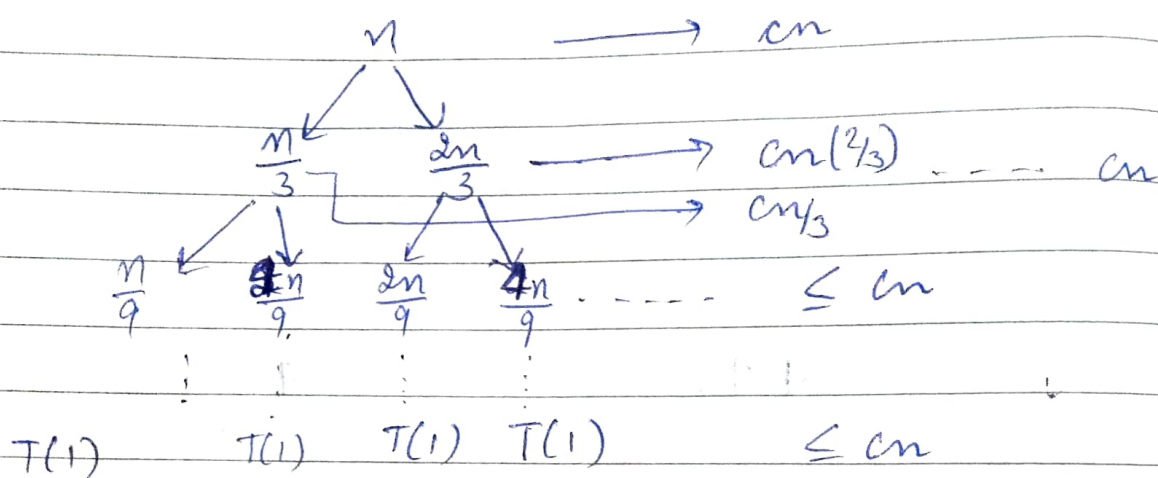 n → cn
n/3 2n/3 → cn(2/3) ---- cn
→ cn/3
n/9 n/9 2n/9 4n/9 ------ ≤ cn
T(1) T(1) T(1) T(1) ≤ cn